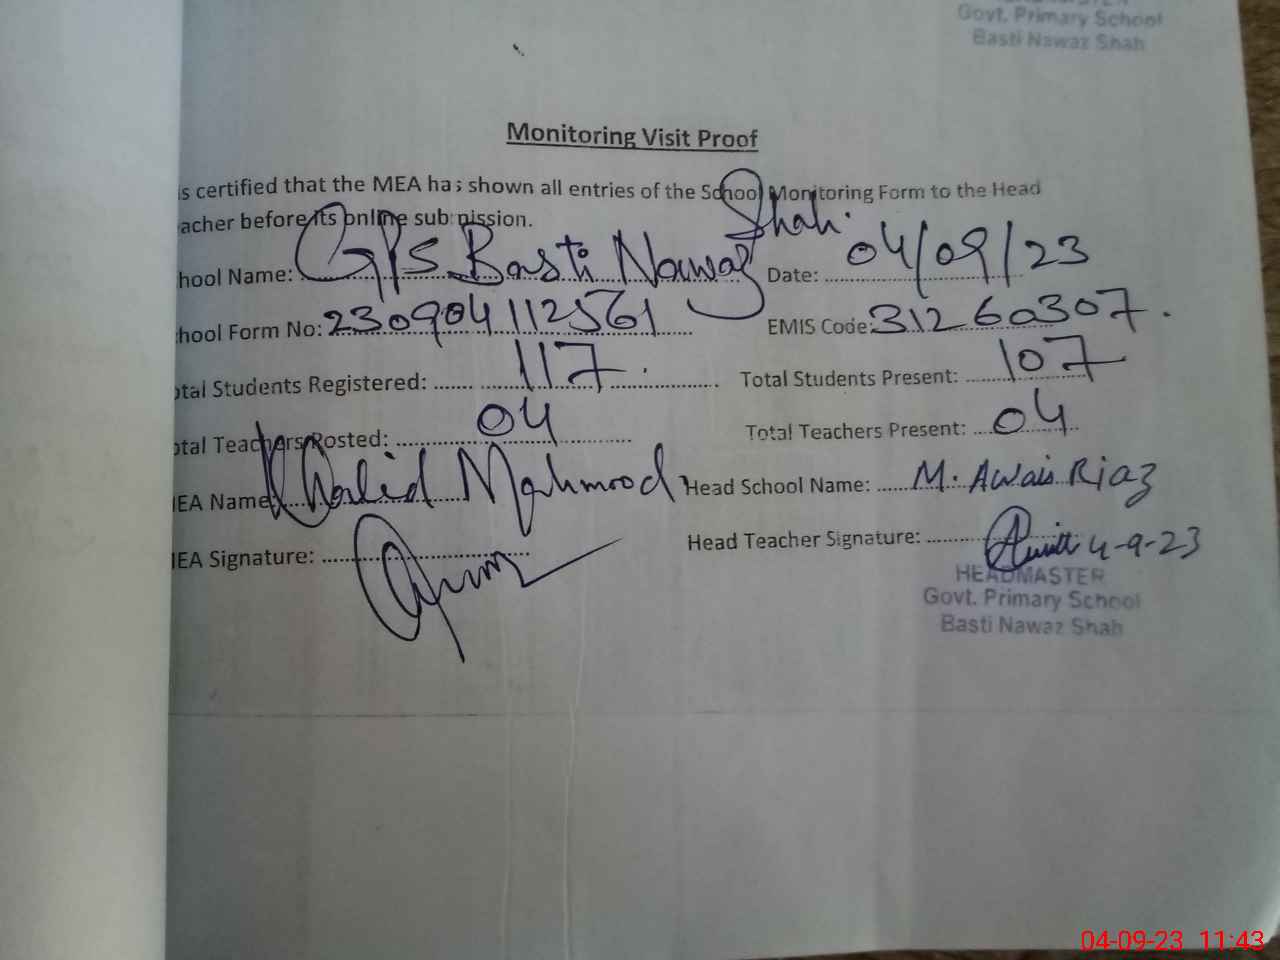 Govt. Primary School
Basti Nawaz Shah
Monitoring Visit Proof
is certified that the MEA has shown all entries of the School Monitoring Form to the Head
acher before its online submission.
hool Name: G/P/S Basti Nawaz Shah. Date: 04/09/23
hool Form No: 230904112561 EMIS Code: 31260307.
otal Students Registered: 117. Total Students Present: 107
otal Teachers Posted: 04 Total Teachers Present: 04
MEA Name: Khalid Mahmood Head School Name: M. Awais Riaz
MEA Signature: Head Teacher Signature: 4-9-23
HEADMASTER
Govt. Primary School
Basti Nawaz Shah
04-09-23 11:43